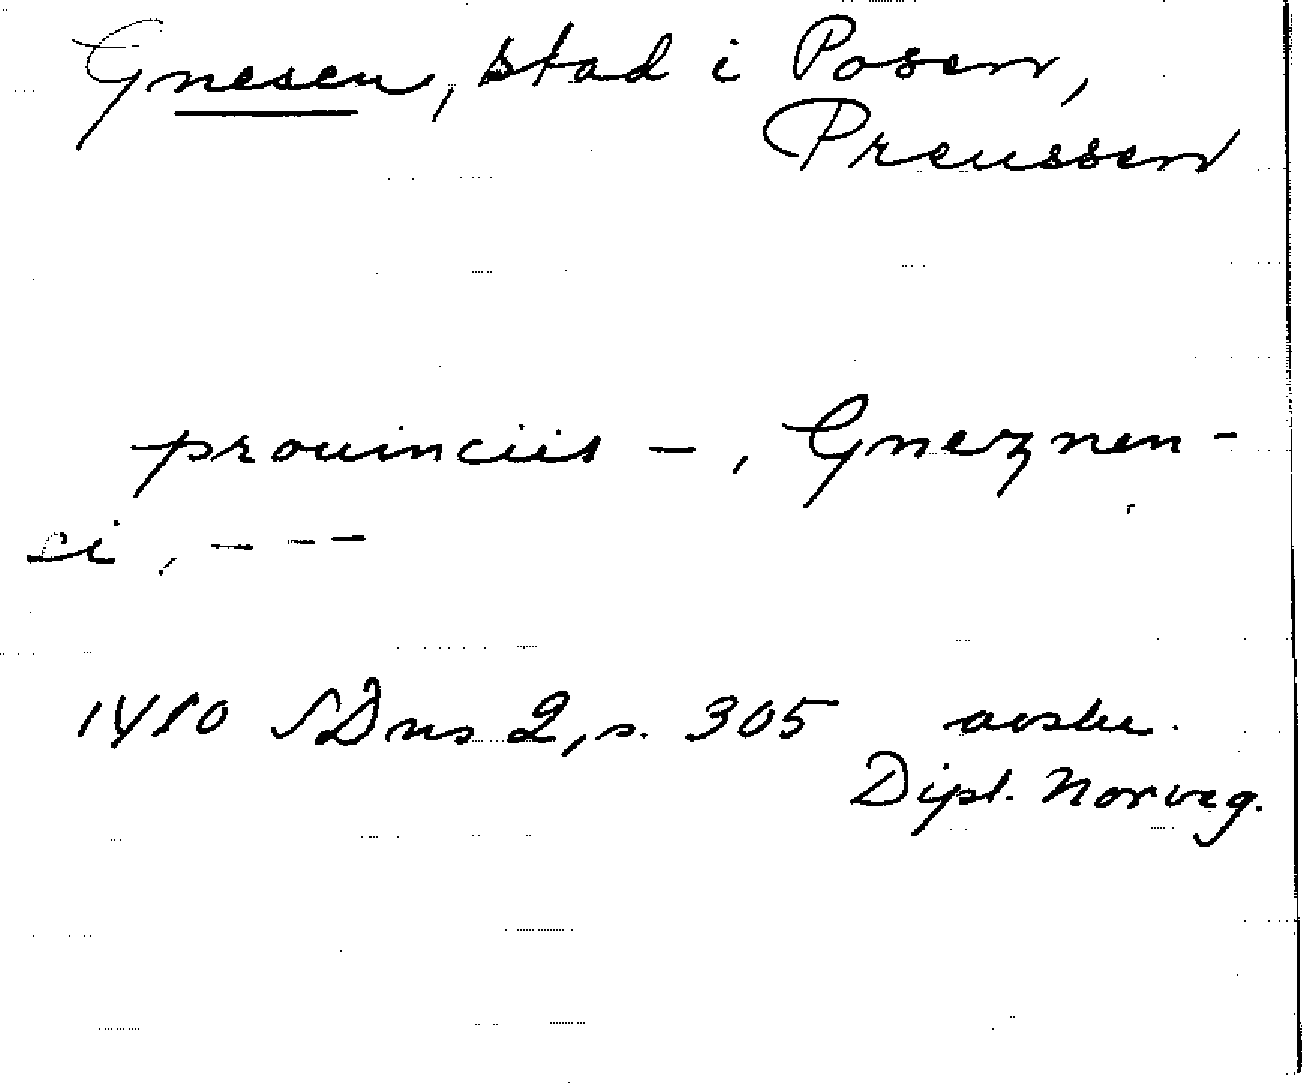 Gnesen, stad i Posen,
Preussen
prouinciis –, Gneznen-
ci, – – –
1410 SDns 2, s. 305
Dipl. Norveg.